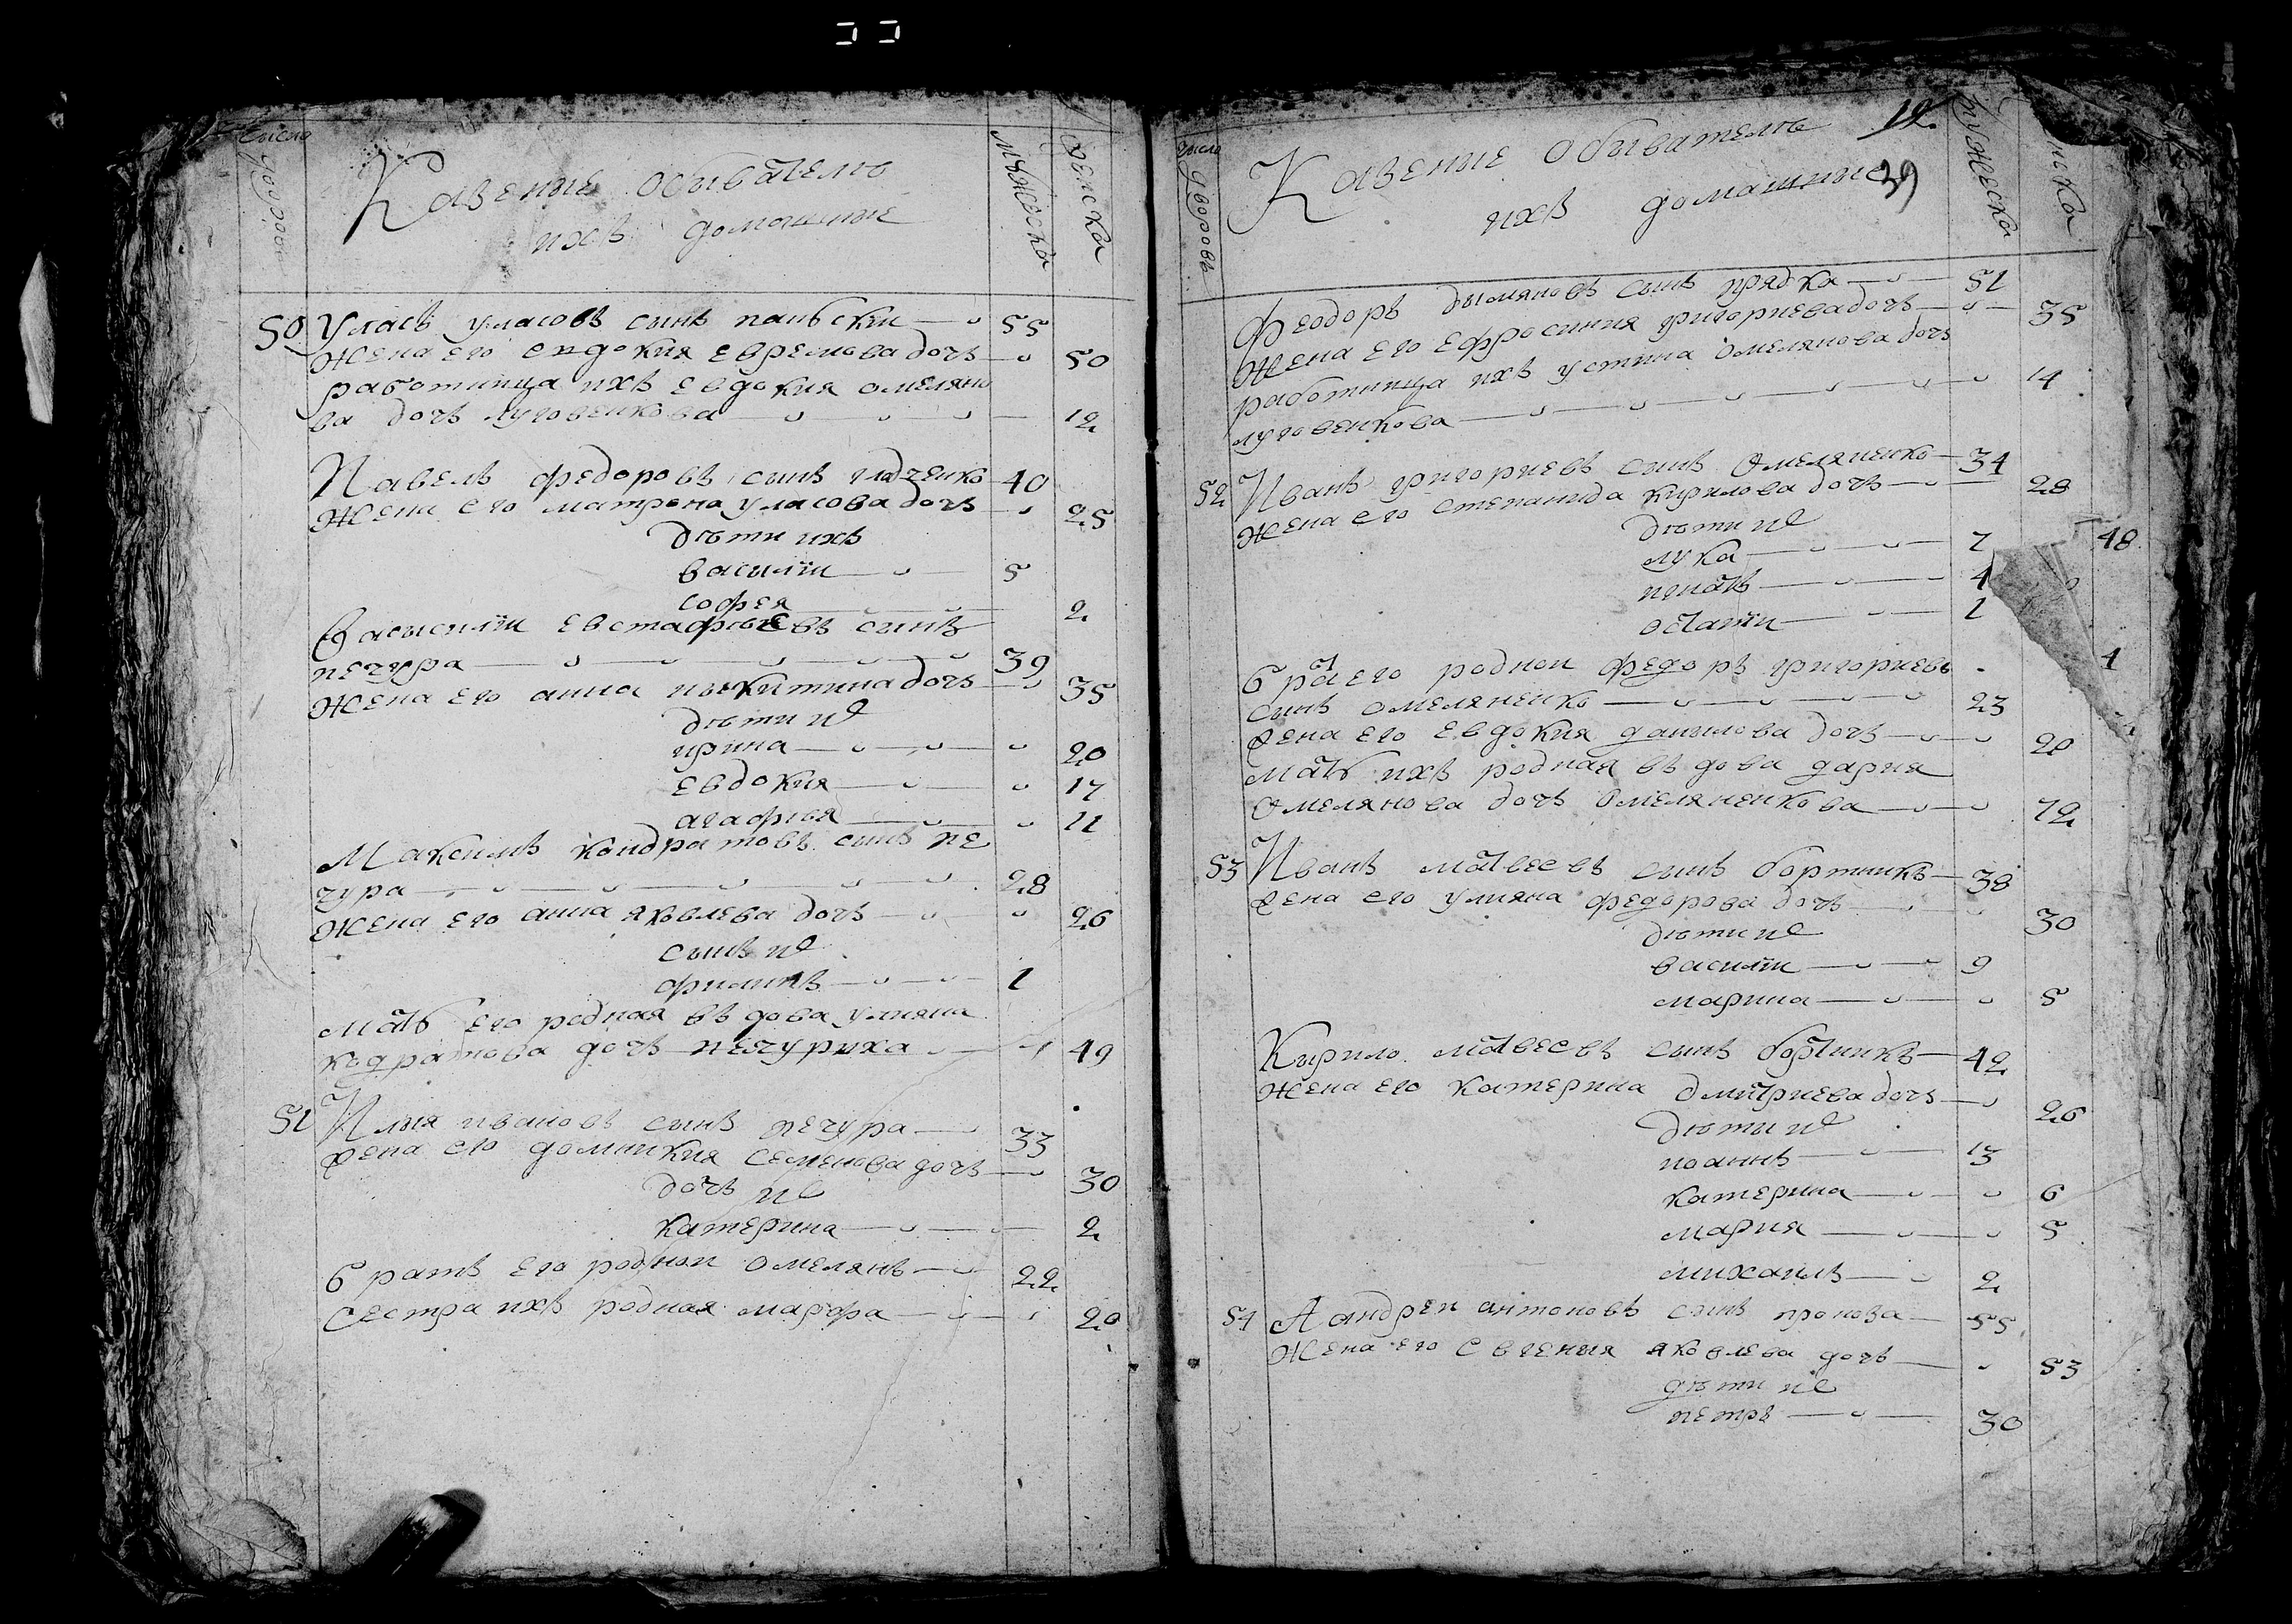 число
дворовъ
Казеные обывателѣ
ихъ домашные
мужеска
женска
50 Уласъ уласовъ сынъ панбски 55
Жена его евдокия ефремова дочь 50
работница ихъ евдокия омеляно
ва дочь луговенкова 12
Павелъ федоровъ сынъ гладченко 40
Жена его матрона уласова дочь 25
дѣти ихъ
василїи 5
софея 2
Васисилїи евстафіевъ сынъ
печура 39
Жена его анна никитина дочь 35
дѣти ихъ
ирина 20
евдокия 17
агафья 11
Максимъ кондратовъ сынъ пе
чура 28
Жена его анна яковлева дочь 26
сынъ ихъ
филипъ 1
мать его родная въдова улияна
кодратова дочь печуриха 49
51 Илия ивановъ сынъ печура 33
Жена его домникия семенова дочь 30
дочь ихъ
катерина 2
братъ его родной омелянъ 22
сестра ихъ родная марфа 20
число
дворовъ
Казеные обывателѣ 12.
ихъ домашные 39
мужеска
нска
Феодоръ дымяновъ сынъ прядка 51
Жена его ефросиния григориева дочь 35
работница ихъ устина омелянова дочь
луговенкова 14
52 Иванъ григориевъ сынъ Омеляненко 34
Жена его степанида кирилова дочь 28
дѣти ихъ
лука 7
игнатъ 4
остапїи 1
48
1
братъ его родной федоръ григориевъ
сынъ омеляненко 23
Жена его евдокия данилова дочь 20
мать ихъ родная въдова дария
Омелянова дочь Омеляненкова 72
53 Иванъ матвеевъ сынъ бортникъ 38
Жена его улияна федорова дочь 30
дѣти ихъ
василїи 9
марина 5
Кирило матвеевъ сынъ бортникъ 42
Жена его катерина дмитриева дочь 26
дѣти ихъ
иоаннъ 13
катерина 6
мария 5
михаилъ 2
54 Аандреи антоновъ сынъ проноза 55
Жена его евгения яковлева дочь 53
дѣти ихъ
петръ 30